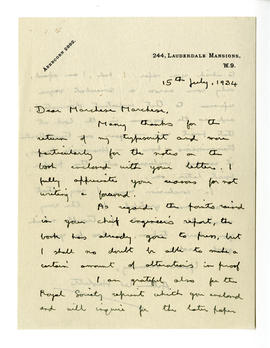 ABERCORN 2900.
244, LAUDERDALE MANSIONS,
W.9.
15th July, 1934
Dear Marchese Marchese,
Many thanks for the
return of my typscript and more
particularly for the notes on the
book enclosed with your letters. I
fully appreciate your reasons for not
writing a foreword.
As regards the points raised
in your chief engineer's report, the
book has already gone to press, but
I shall no doubt be able to make a
certain amount of alterations in proof
I am grateful also for the
Royal Society reprint which you enclosed
and will inquire for the later paper